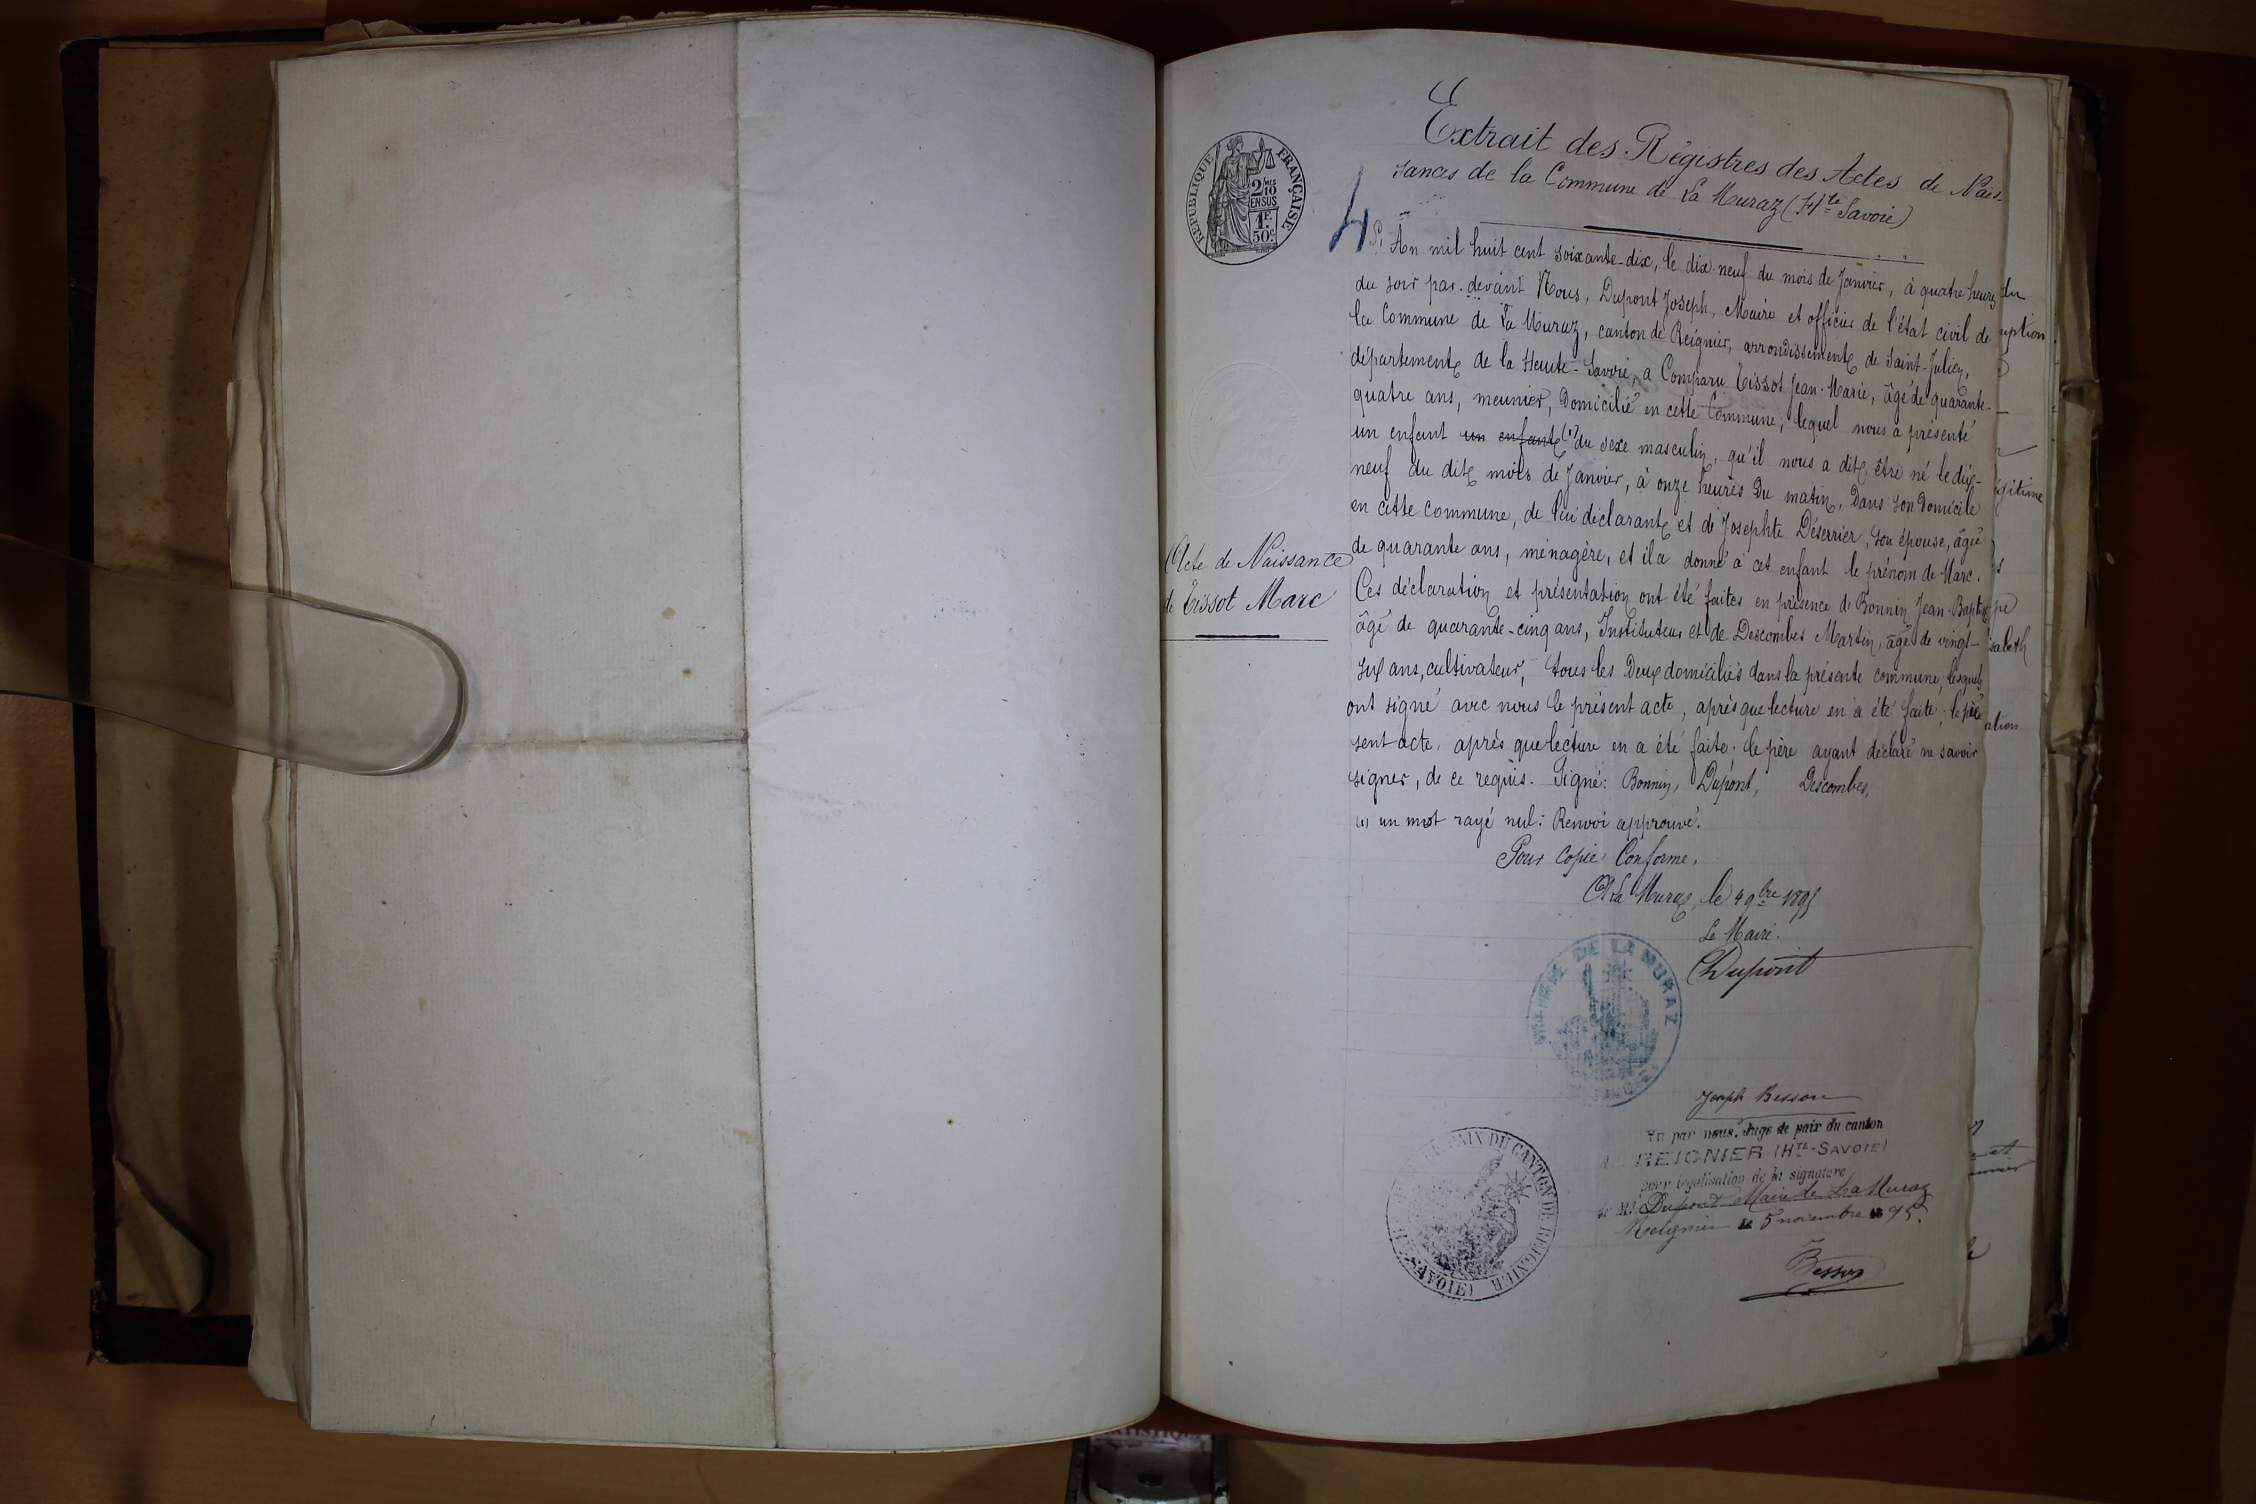 Extrait des Régistres des Actes de Nais-
sances de la Commune de La Muraz (Hte Savoie)
RÉPUBLIQUE FRANÇAISE
2/10 EN SUS
1F. 50c
4
L'An mil huit cent soixante-dix, le dix-neuf du mois de Janvier, à quatre heures
du soir par-devant Nous, Dupont Joseph, Maire et officier de l'état civil de
la Commune de La Muraz, canton de Reignier, arrondissement de Saint-Julien,
département de la Haute-Savoie, a Comparu Tissot Jean-Marie, âgé de quarante-
quatre ans, meunier, Domicilié en cette Commune, lequel nous a présenté
un enfant un enfant (1) du sexe masculin, qu'il nous a dit être né le dix-
neuf du dit mois de Janvier, à onze heures Du matin, Dans son Domicile
en cette commune, de lui déclarant et de Josephte Déserrier, son épouse, âgée
de quarante ans, ménagère, et il a donné à cet enfant le prénom de Marc.
Ces déclaration et présentation ont été faites en présence de Bonnin Jean-Baptiste
âgé de quarante-cinq ans, Instituteur et de Descombes Martin, âgé de vingt-
six ans, cultivateur, tous les Deux domiciliés dans la présente commune, lesquels
ont signé avec nous le présent acte, après que lecture en a été faite; le père
sent acte, après que lecture en a été faite. le père ayant déclaré ne savoir
signer, de ce requis. Signé: Bonnin, Dupont, Descombes,
(1) un mot rayé nul: Renvoi approuvé.
Acte de Naissance
de Tissot Marc
Pour Copie Conforme,
A La Muraz, le 4 9bre 1895
Le Maire.
Dupont
MAIRIE DE LA MURAZ
Joseph Besson
Vu par nous, Juge de paix du canton
REIGNIER (HTE-SAVOIE)
pour légalisation de la signature
de M. Dupont Maire de La Muraz
Reignier le 5 novembre 1895
Besson
PAIX DU CANTON DE REIGNIER
SAVOIE)
du
uption
égitime
sabeth
ation
et